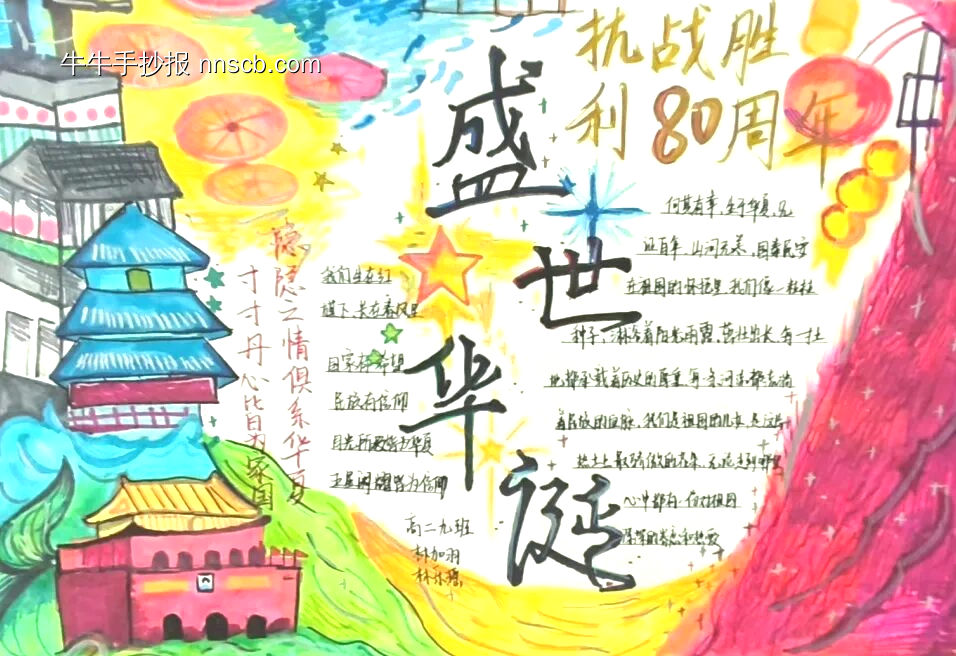 牛牛手抄报 nnscb.com
抗战胜
利80周年
盛世华诞
隐隐之情俱系华夏
寸寸丹心皆为家国
我们生在红
旗下,长在春风里
国家有希望
民族有信仰
目光所致皆为华夏
五星闪耀皆为信仰
高二九班
林乐瑶
何其有幸,生于华夏,见
证百年,山河无恙,国泰民安
在祖国的怀抱里,我们像一粒粒
种子,沐浴着阳光雨露,茁壮成长,每一寸土
地都承载着历史的厚重,每条河流都流淌
着民族的血脉,我们是祖国的儿女,是这片
热土上最骄傲的花朵,无论走到哪里
心中都有一份对祖国
深深的眷恋和热爱